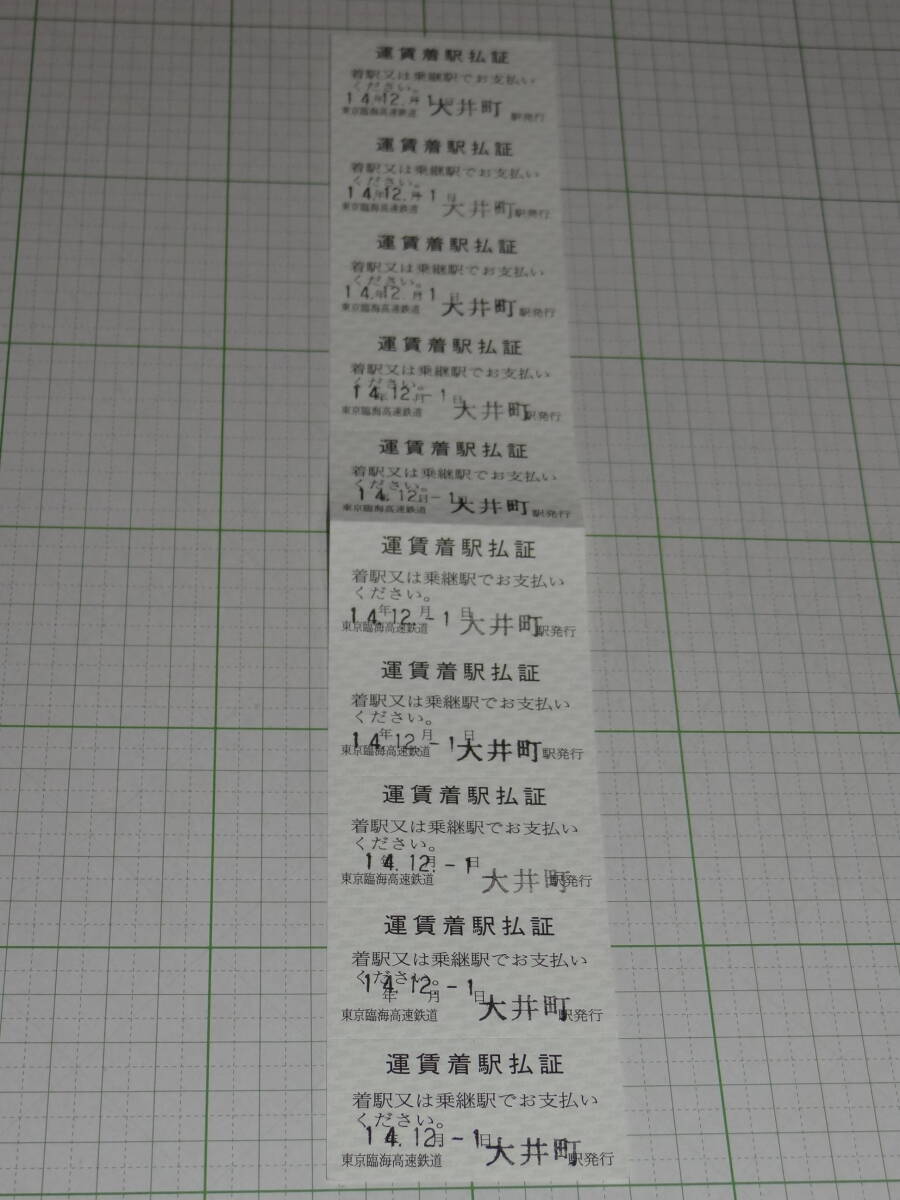 運賃着駅払証
着駅又は乗継駅でお支払い
ください。
14年12.月-1日
東京臨海高速鉄道 大井町 駅発行
運賃着駅払証
着駅又は乗継駅でお支払い
ください。
14年12.月-1日
東京臨海高速鉄道 大井町 駅発行
運賃着駅払証
着駅又は乗継駅でお支払い
ください。
14年12.月-1日
東京臨海高速鉄道 大井町 駅発行
運賃着駅払証
着駅又は乗継駅でお支払い
ください。
14年12月-1日
東京臨海高速鉄道 大井町 駅発行
運賃着駅払証
着駅又は乗継駅でお支払い
ください。
14年12月-1日
東京臨海高速鉄道 大井町 駅発行
運賃着駅払証
着駅又は乗継駅でお支払い
ください。
14年12.月-1日
東京臨海高速鉄道 大井町 駅発行
運賃着駅払証
着駅又は乗継駅でお支払い
ください。
14年12.月-1日
東京臨海高速鉄道 大井町 駅発行
運賃着駅払証
着駅又は乗継駅でお支払い
ください。
14年12.月-1日
東京臨海高速鉄道 大井町 駅発行
運賃着駅払証
着駅又は乗継駅でお支払い
ください。
14年12.月-1日
東京臨海高速鉄道 大井町 駅発行
運賃着駅払証
着駅又は乗継駅でお支払い
ください。
14年12月-1日
東京臨海高速鉄道 大井町 駅発行